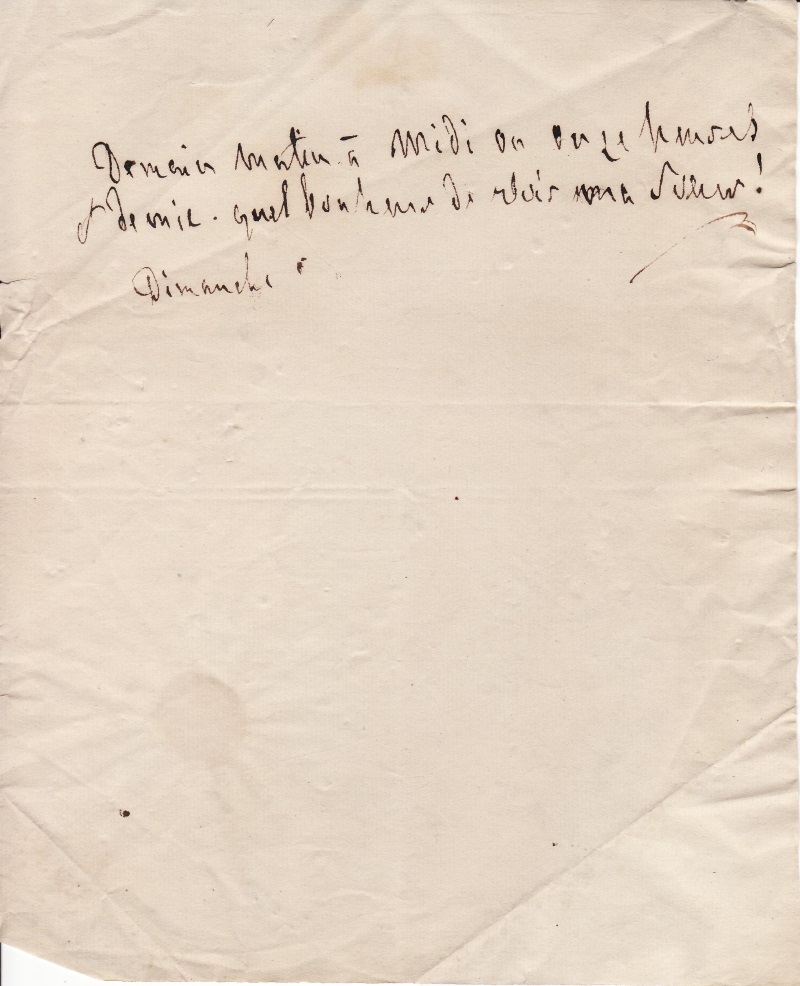 Demain matin à midi ou onze heures
et demie. quel bonheur de voir ma Soeur!
Dimanche